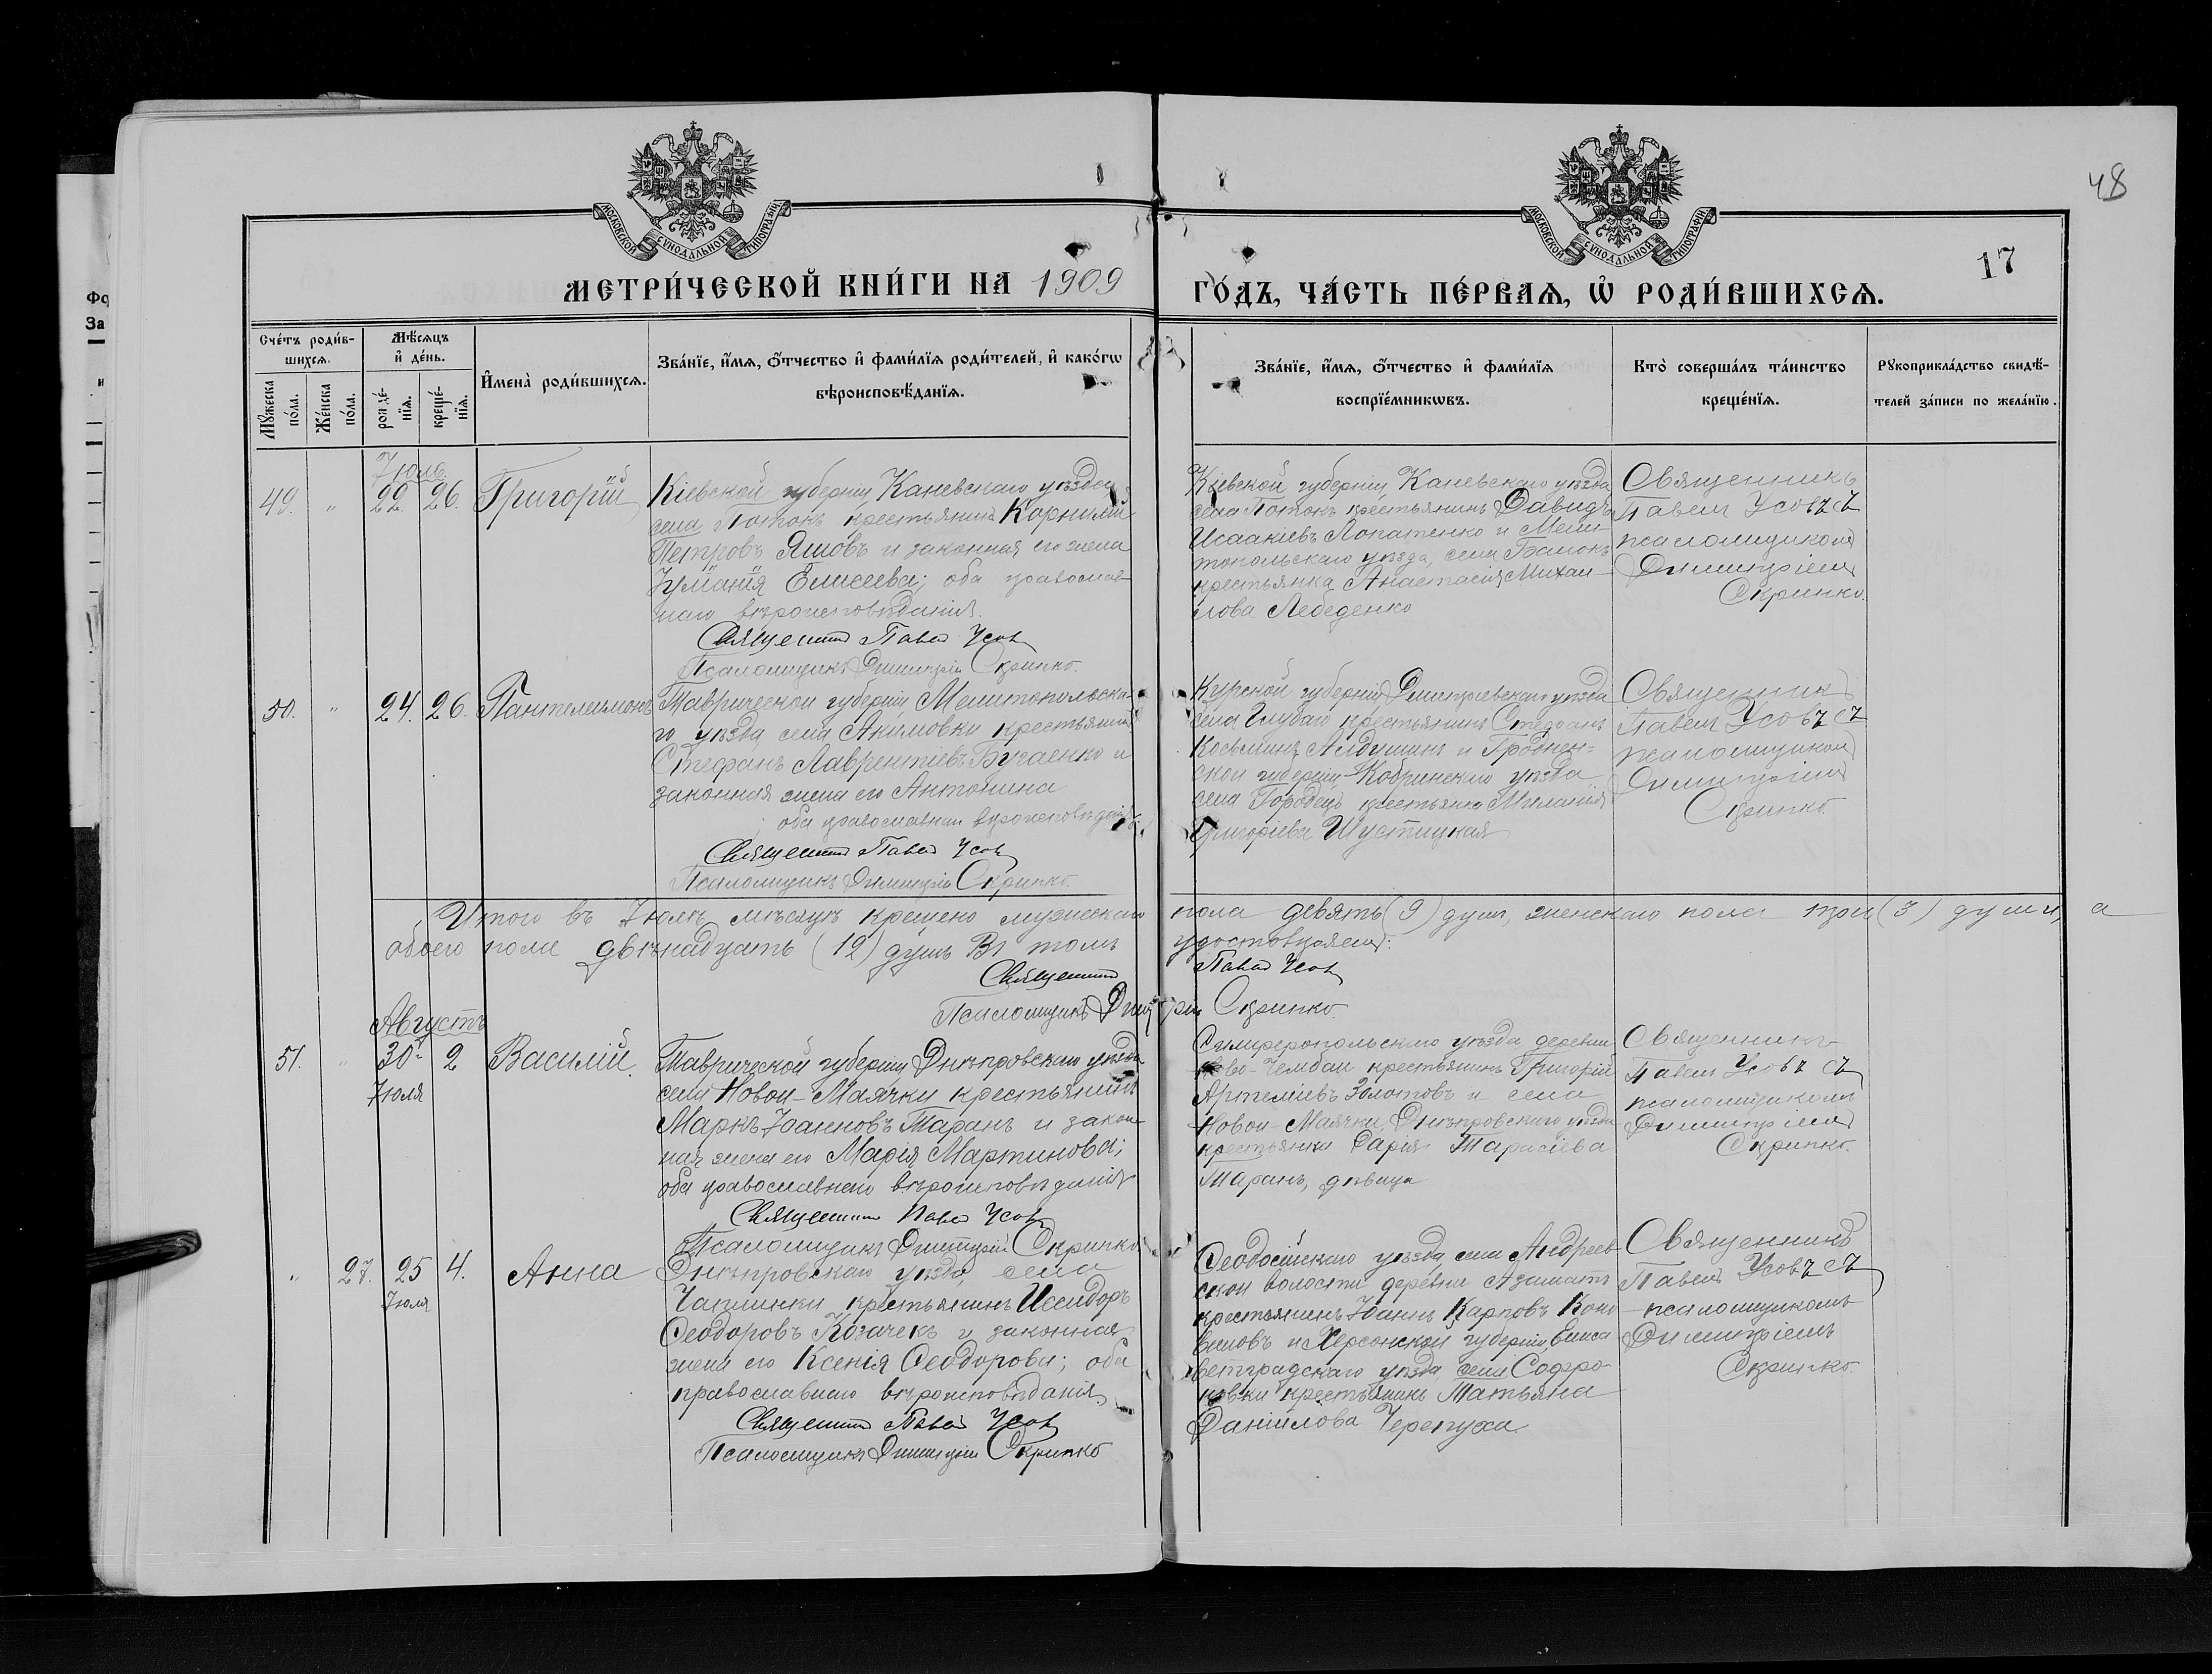 48
17
МОСКОВСКОЙ СУНОДАЛЬНОЙ ТИПОГРАФІИ
МОСКОВСКОЙ СУНОДАЛЬНОЙ ТИПОГРАФІИ
МЕТРИ́ЧЕСКОЙ КНИ́ГИ НА 1909
ГО́ДЪ, ЧА́СТЬ ПЕ́РВАѦ, Ѡ҆ РОДИ́ВШИХСѦ.
Сче́тъ роди́в-
шихсѧ.
Мꙋжеска по́ла.
Же́нска по́ла.
Мѣ́сѧцъ
и҆ де́нь.
рожде́-
нїѧ.
креще́-
нїѧ.
И҆мена̀ роди́вшихсѧ.
Зва́нїе, и҆́мѧ, ѻ҆́тчество и҆ фами́лїѧ роди́телей, и҆ како́гѡ
вѣроисповѣ́данїѧ.
Зва́нїе, и҆́мѧ, ѻ҆́тчество и҆ фами́лїѧ
воспрїе́мникѡвъ.
Кто̀ соверша́лъ та́инство
креще́нїѧ.
Рꙋкоприкла́дство свидѣ́-
телей за́писи по жела́нїю.
Іюль
49. " 22. 26. Григорій
Кіевской губерніи Каневскаго уѣзда
села Потокъ крестьянинъ Корнилій
Петровъ Яшовъ и законная его жена
Іуліанія Елисеева; оба православ-
наго вѣроисповѣданія.
Священникъ Павелъ Усовъ
Псаломщикъ Димитрій Скрипко.
Кіевской губерніи Каневскаго уѣзда
села Потокъ крестьянинъ Давидъ
Исаакіевъ Лопатенко и Мели-
топольскаго уѣзда, села Балокъ
крестьянка Анастасія Михаи-
лова Лебеденко
Священникъ
Павелъ Усовъ съ
псаломщикомъ
Димитріемъ
Скрипко.
50. " 24. 26. Пантелимонъ
Таврической губерніи Мелитопольска-
го уѣзда села Акимовки крестьянинъ
Стефанъ Лаврентіевъ Бугаенко и
законная жена его Антонина
; оба православнаго вѣроисповѣданія.
Священникъ Павелъ Усовъ
Псаломщикъ Димитрій Скрипко.
Курской губерніи Дмитріевскаго уѣзда
села крестьянинъ Стефанъ
Косьминъ и Гроднен-
ской губерніи Кобринскаго уѣзда
села Городецъ крестьянка Меланія
Григоріева Шустицкая
Священникъ
Павелъ Усовъ съ
псаломщикомъ
Димитріемъ
Скрипко.
Итого въ Іюлѣ мѣсяцѣ крещено мужескаго пола девять (9) душъ, женскаго пола три (3) души, а
обоего пола двѣнадцать (12) душъ. Въ томъ удостовѣряемъ:
Священникъ Павелъ Усовъ
Псаломщикъ Димитрій Скрипко.
Августъ
51. " 30 2 Василій.
Іюля
Таврической губерніи Днѣпровскаго уѣзда
села Новой-Маячки крестьянинъ
Маркъ Іоанновъ Таранъ и закон-
ная жена его Марія Мартинова;
оба православнаго вѣроисповѣданія
Священникъ Павелъ Усовъ
Псаломщикъ Димитрій Скрипко
Симферопольскаго уѣзда деревни
Ново-Чембай крестьянинъ Григорій
Артеміевъ Золотовъ и села
Новой Маячки, Днѣпровскаго уѣзда
крестьянка Дарія Тарасіева
Таранъ, дѣвица
Священникъ
Павелъ Усовъ съ
псаломщикомъ
Димитріемъ
Скрипко.
" 27. 25 4. Анна
Іюля
Днѣпровскаго уѣзда, села
Чаплинки крестьянинъ Исидоръ
Ѳеодоровъ Козачекъ и законная
жена его Ксенія Ѳеодорова; оба
православнаго вѣроисповѣданія.
Священникъ Павелъ Усовъ
Псаломщикъ Димитрій Скрипко
Ѳеодосійскаго уѣзда, села Андреев-
ской волости деревни Азаматъ
крестьянинъ Іоаннъ Карповъ Коно-
валовъ и Херсонской губерніи, Елиса-
ветградскаго уѣзда, села Софро-
новки крестьянка Татьяна
Даніилова Черепуха.
Священникъ
Павелъ Усовъ съ
псаломщикомъ
Димитріемъ
Скрипко.